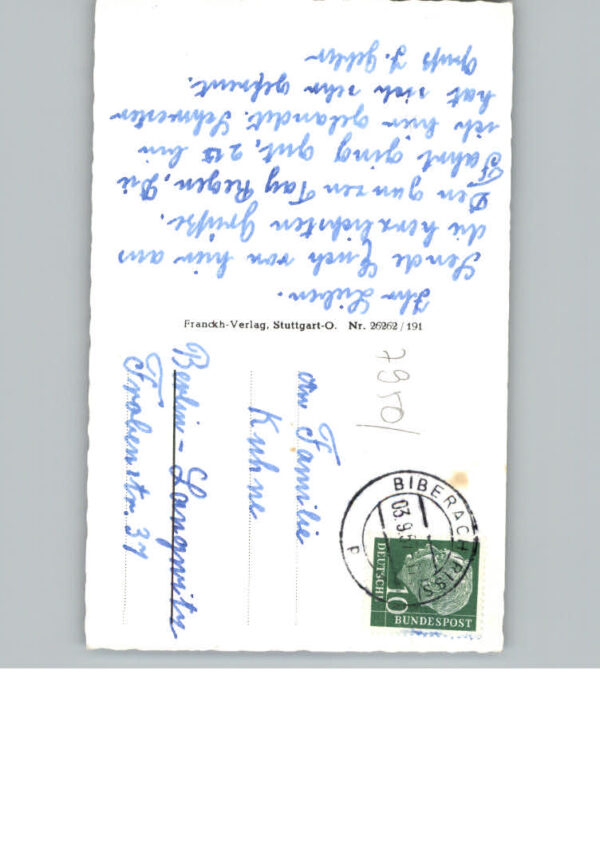 Ihr Lieben.
Sende Euch von hier aus
die herzlichsten Grüße.
Den ganzen Tag Regen, Die
Fahrt ging gut, 2 15 bin
ich hier gelandet. Schwester
hat sich sehr gefreut.
Gruß J.
Franckh-Verlag, Stuttgart-O. Nr. 26262/191
7950/
BIBERACH (RISS)
03.9.5
d
DEUTSCHE
10
BUNDESPOST
An Familie
Kuhne
Berlin-Lankwitz
Frobenstr. 37